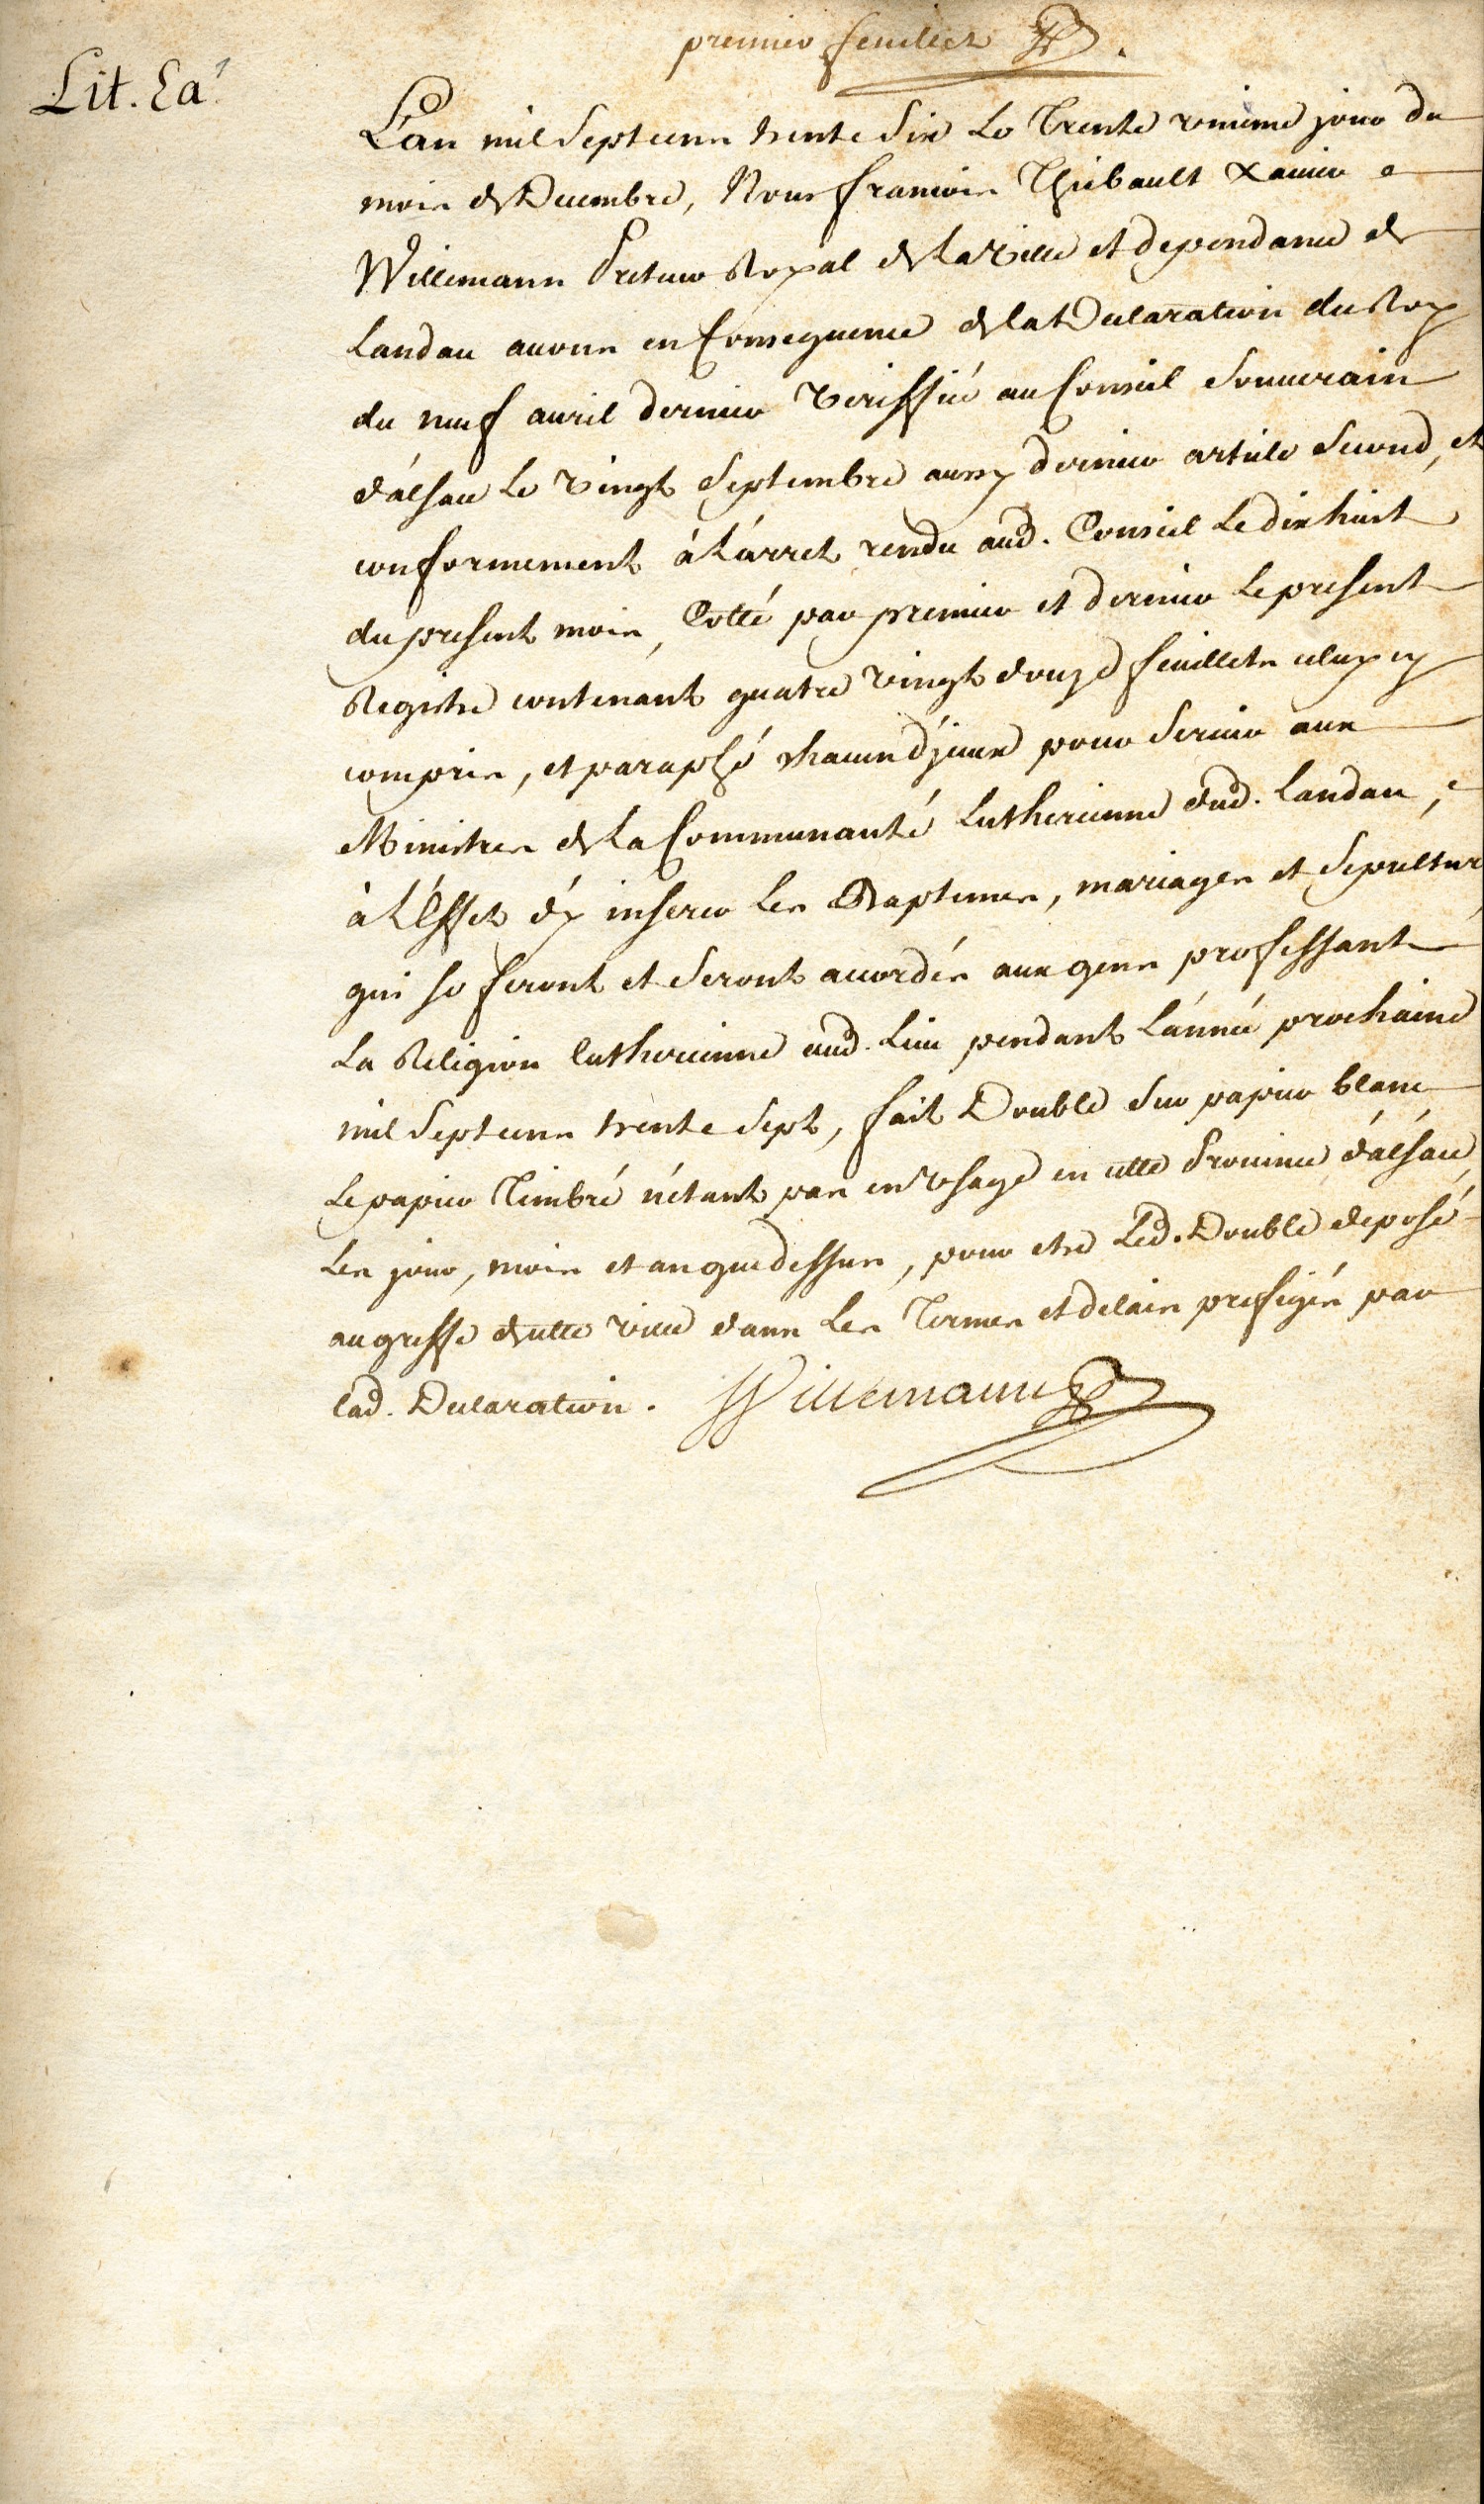 premier feuillet
Lit. Ea
L'an mil Sept cens trente Six Le Trente unieme jour du
mois de Decembre, Nous françois Thiebault Xavier
Willemann Preteur Royal de La Ville et dependance de
Landau avons en Consequence de la Declaration du Roy
du neuf avril dernier Veriffié au Conseil Souverain
d'alsace Le Vingt Septembre aussy dernier article Second, et
conformement à L'arret rendu aud. Conseil Le dix huit
du present mois, Cotté par premier et dernier Le present
Registre contenant quatre Vingt douze feuillets celuy cy
compris, et paraphé chacun d'jceux pour Servir aux
Ministres de La Communauté Lutherienne dud. Landau,
à L'Effet d'y inserer Les Baptemes, mariages et Sepultur
qui se feront et Seront accordés aux gens professant
La Religion lutherienne aud. Lieu pendant L'année prochaine
mil Sept cens trente Sept, fait Double Sur papier blanc
Le papier Timbré n'étant pas en Usage en cette Province d'alsace
Les jour, mois et an que dessus, pour etre Led. Double deposé
au greffe de cette ville dans Les Termes et delais prefigés par
lad. Declaration. Willemann